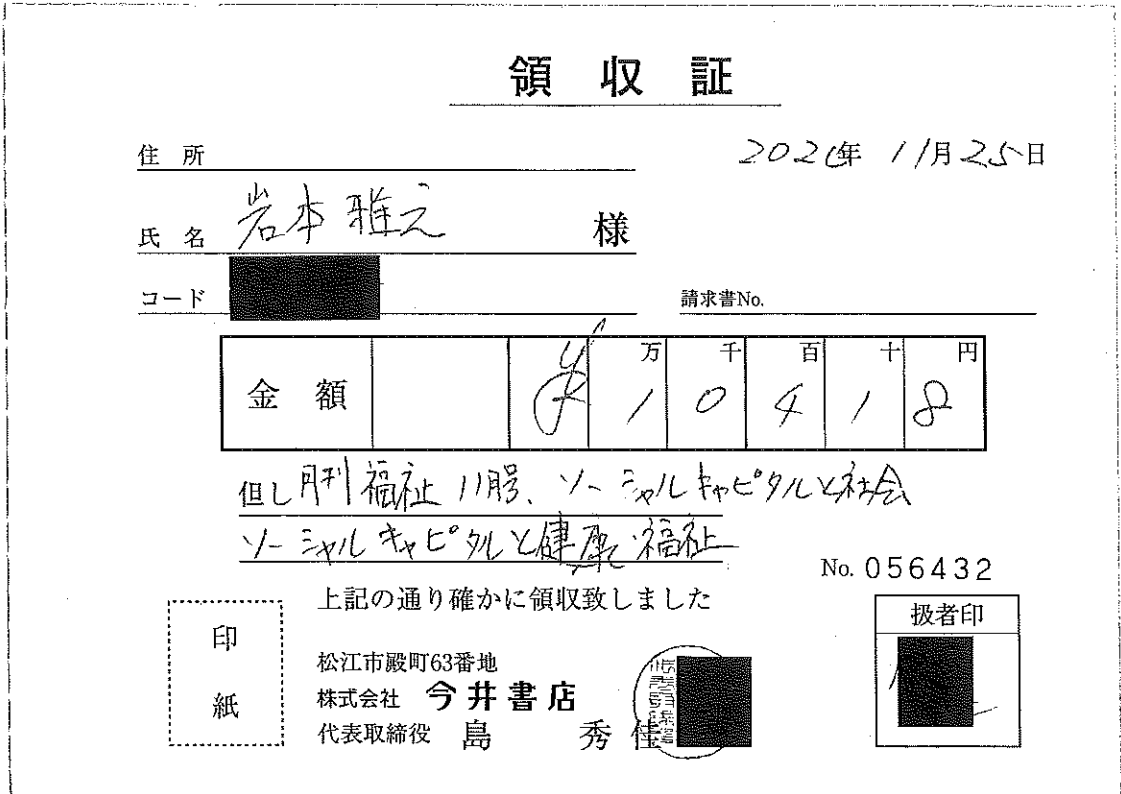 領収証
住所
2020年 11月25日
氏名 岩本 雅之 様
コード
請求書No.
金額 ¥ 万 千 百 十 円
1 0 4 1 8
但し 月刊福祉 11月号、ソーシャルキャピタルと社会
ソーシャルキャピタルと健康・福祉
No. 056432
上記の通り確かに領収致しました
扱者印
印紙
松江市殿町63番地
株式会社 今井書店
代表取締役 島 秀佳